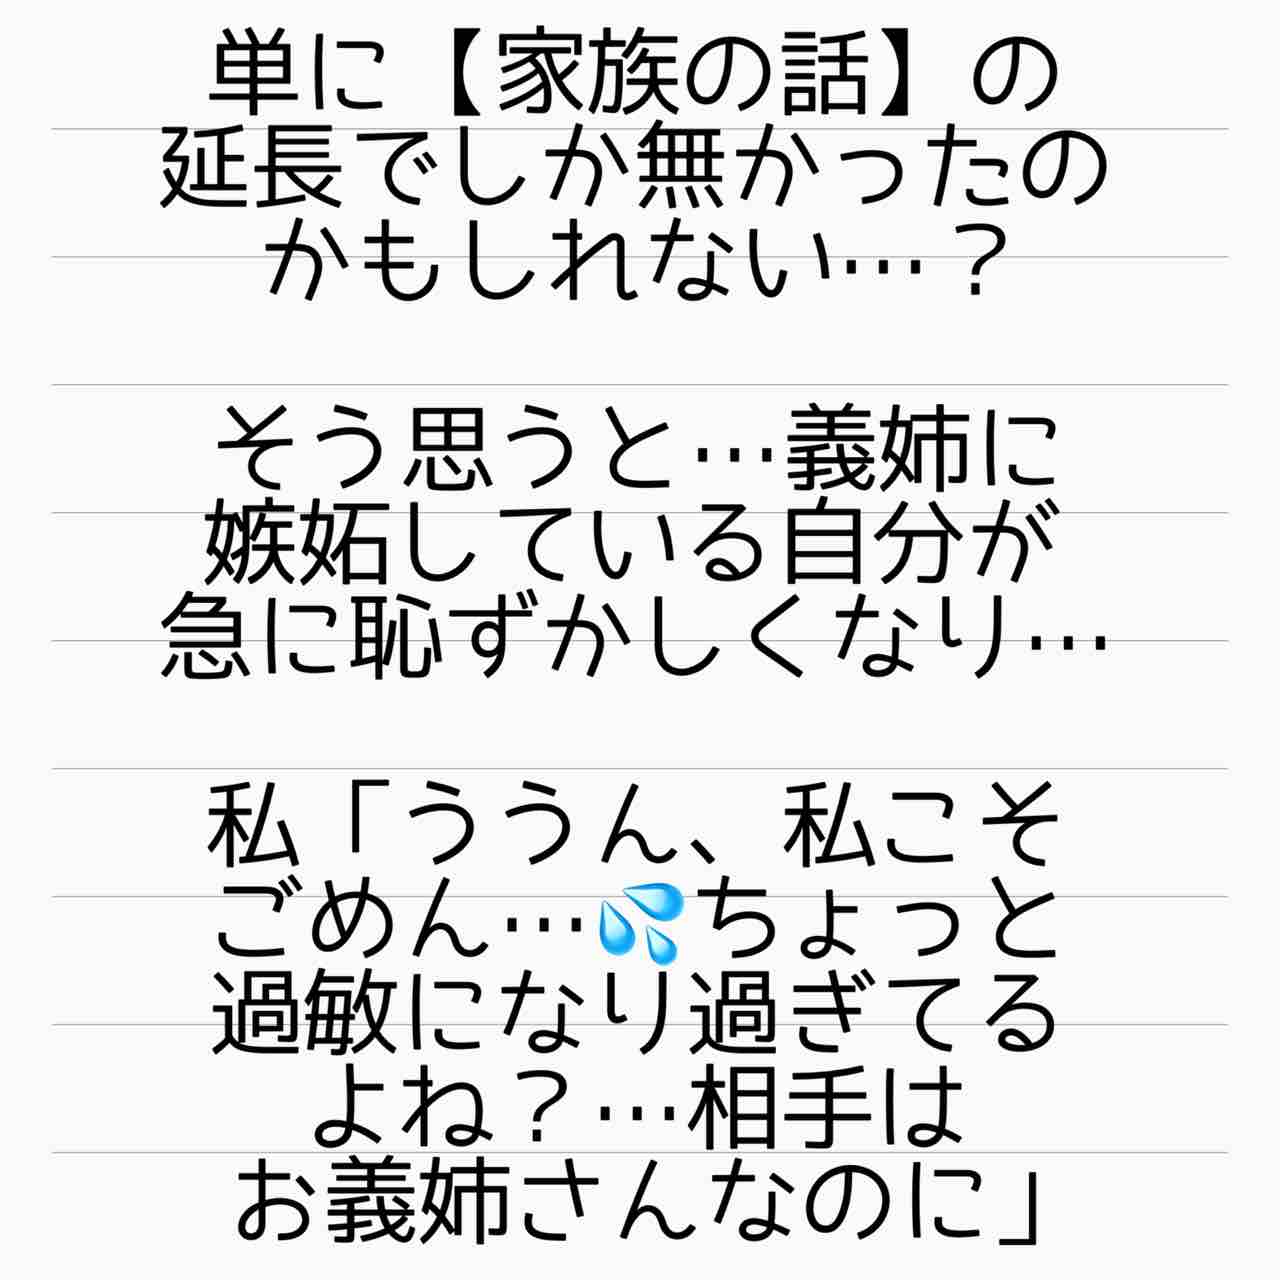 単に【家族の話】の
延長でしか無かったの
かもしれない…？
そう思うと…義姉に
嫉妬している自分が
急に恥ずかしくなり…
私「ううん、私こそ
ごめん…💦ちょっと
過敏になり過ぎてる
よね？…相手は
お義姉さんなのに」